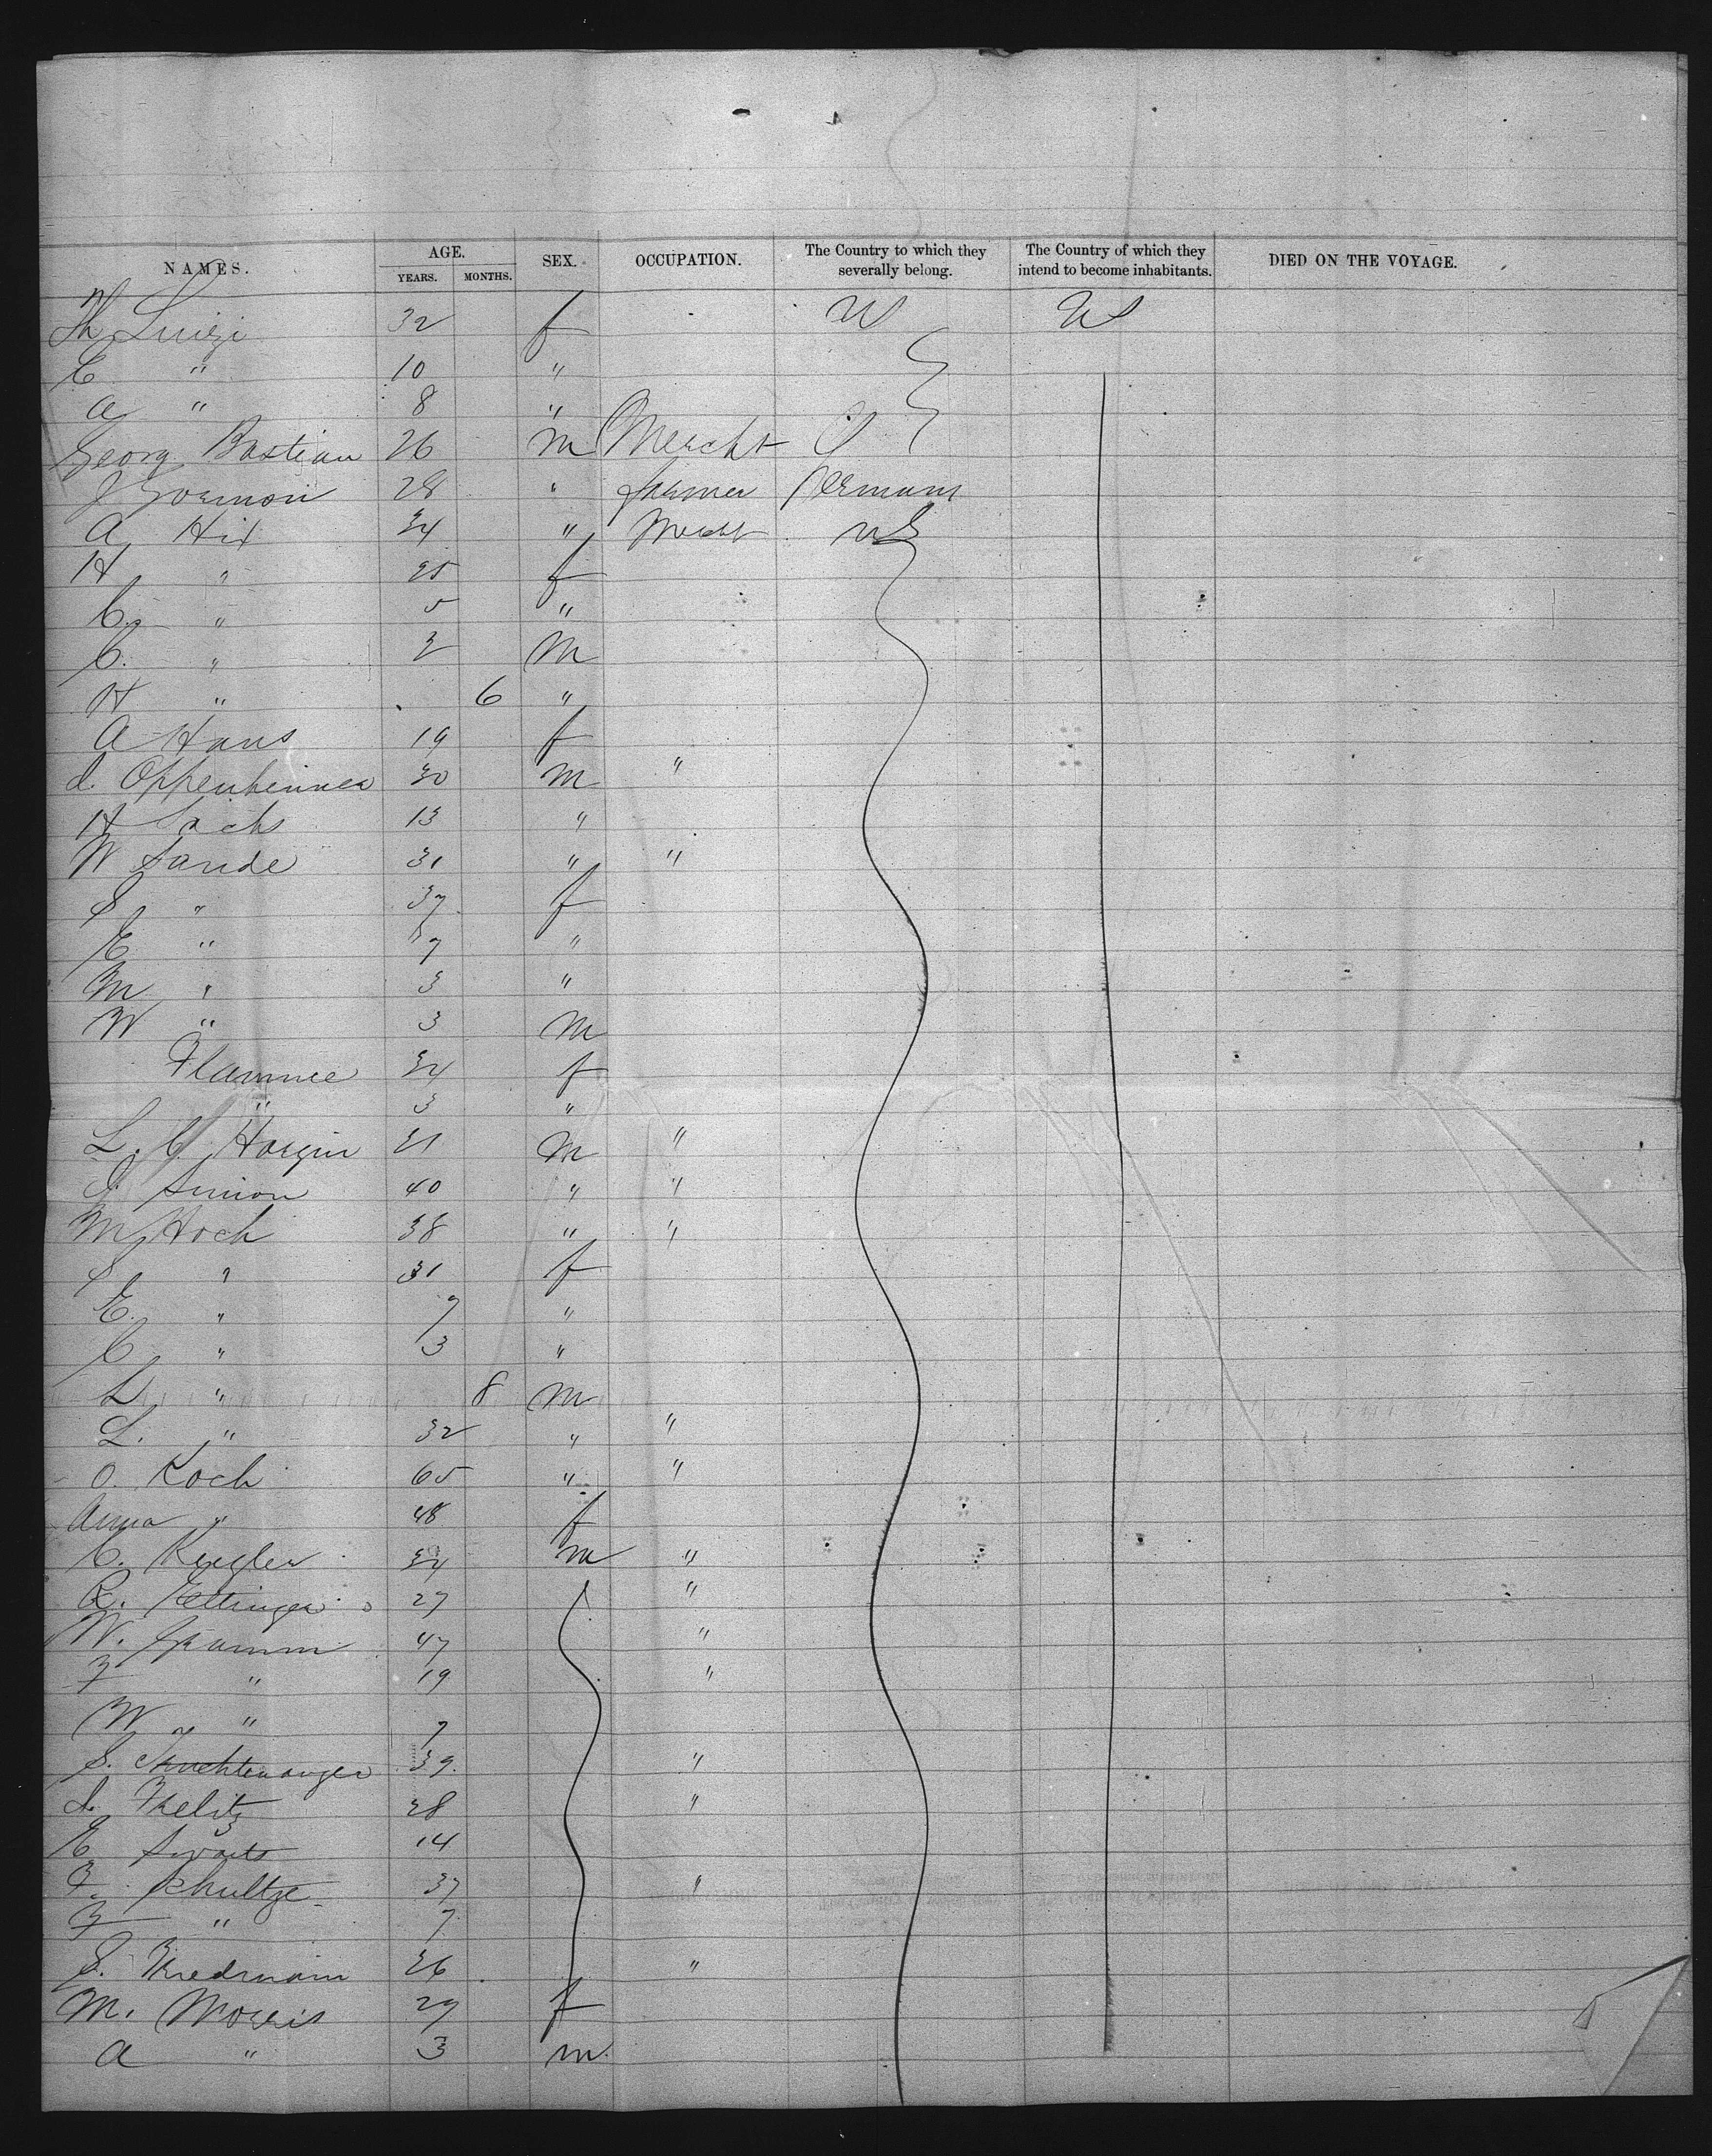 NAMES. AGE. YEARS. MONTHS. SEX. OCCUPATION. The Country to which they severally belong. The Country of which they intend to become inhabitants. DIED ON THE VOYAGE.
Th Luizi 32 f US US
C " 10 "
A " 8 "
Georg Bastian 26 m Mercht
J 28 " farmer Germany
A Hix 34 " Mercht US
H " 25 f
C. " 5 "
C. " 2 m
H " 6 "
A Hans 19 f
d. Oppenheimer 30 m "
H Sachs 13 "
W Sande 31 " "
S " 37 f
E " 7 "
M " 3 "
W " 3 m
Flamme 34 f
" 3 "
L. C. m "
J. Simon 40 " "
M Hoch 38 " "
S " 31 f
E. " 7 "
C " 3 "
L " 8 m
L. " 32 " "
O. Koch 65 " "
Anna " 48 f
C. 34 m "
R. Ettinger 27 "
W. 47 "
F " 19 "
W " 7
S. 39. "
d. 28 "
E 14
F. Schultze 37 "
F " 7
S. Friedmann 26 "
M. Morris 29 f
A " 3 m